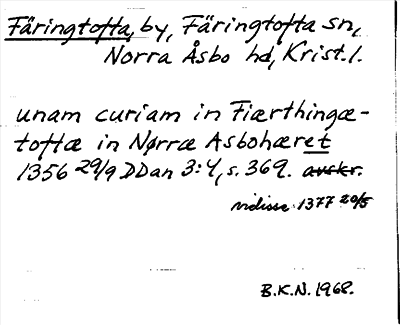 Färingtofta, by, Färingtofta sn,
Norra Åsbo hd, Krist. l.
unam curiam in Fiærthingæ-
toftæ in Nørræ Asbohæret
1356 29/9 DDan 3:4, s. 369. avskr.
vidisse 1377 20/5
B.K.N. 1968.